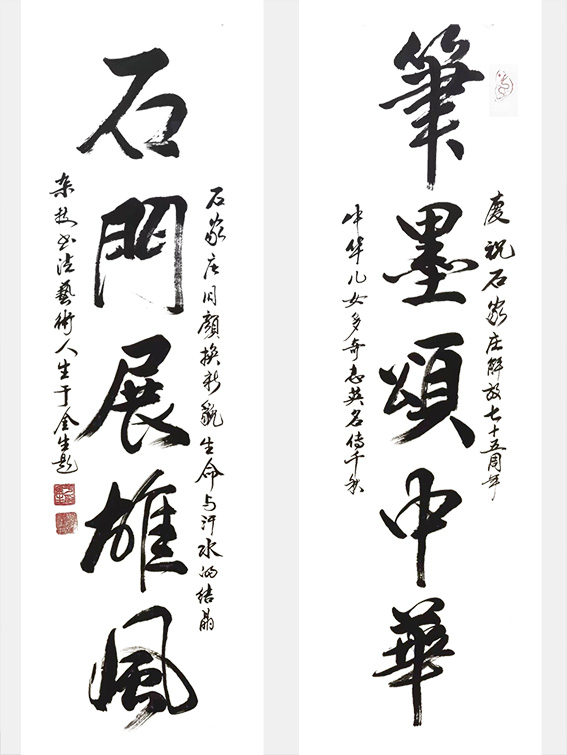 慶祝石家庄解放七十五周年
筆墨頌中華
中华儿女多奇志英名传千秋
石家庄旧顔换新貌生命与汗水的结晶
石門展雄風
杂技书法藝術人生于金生题